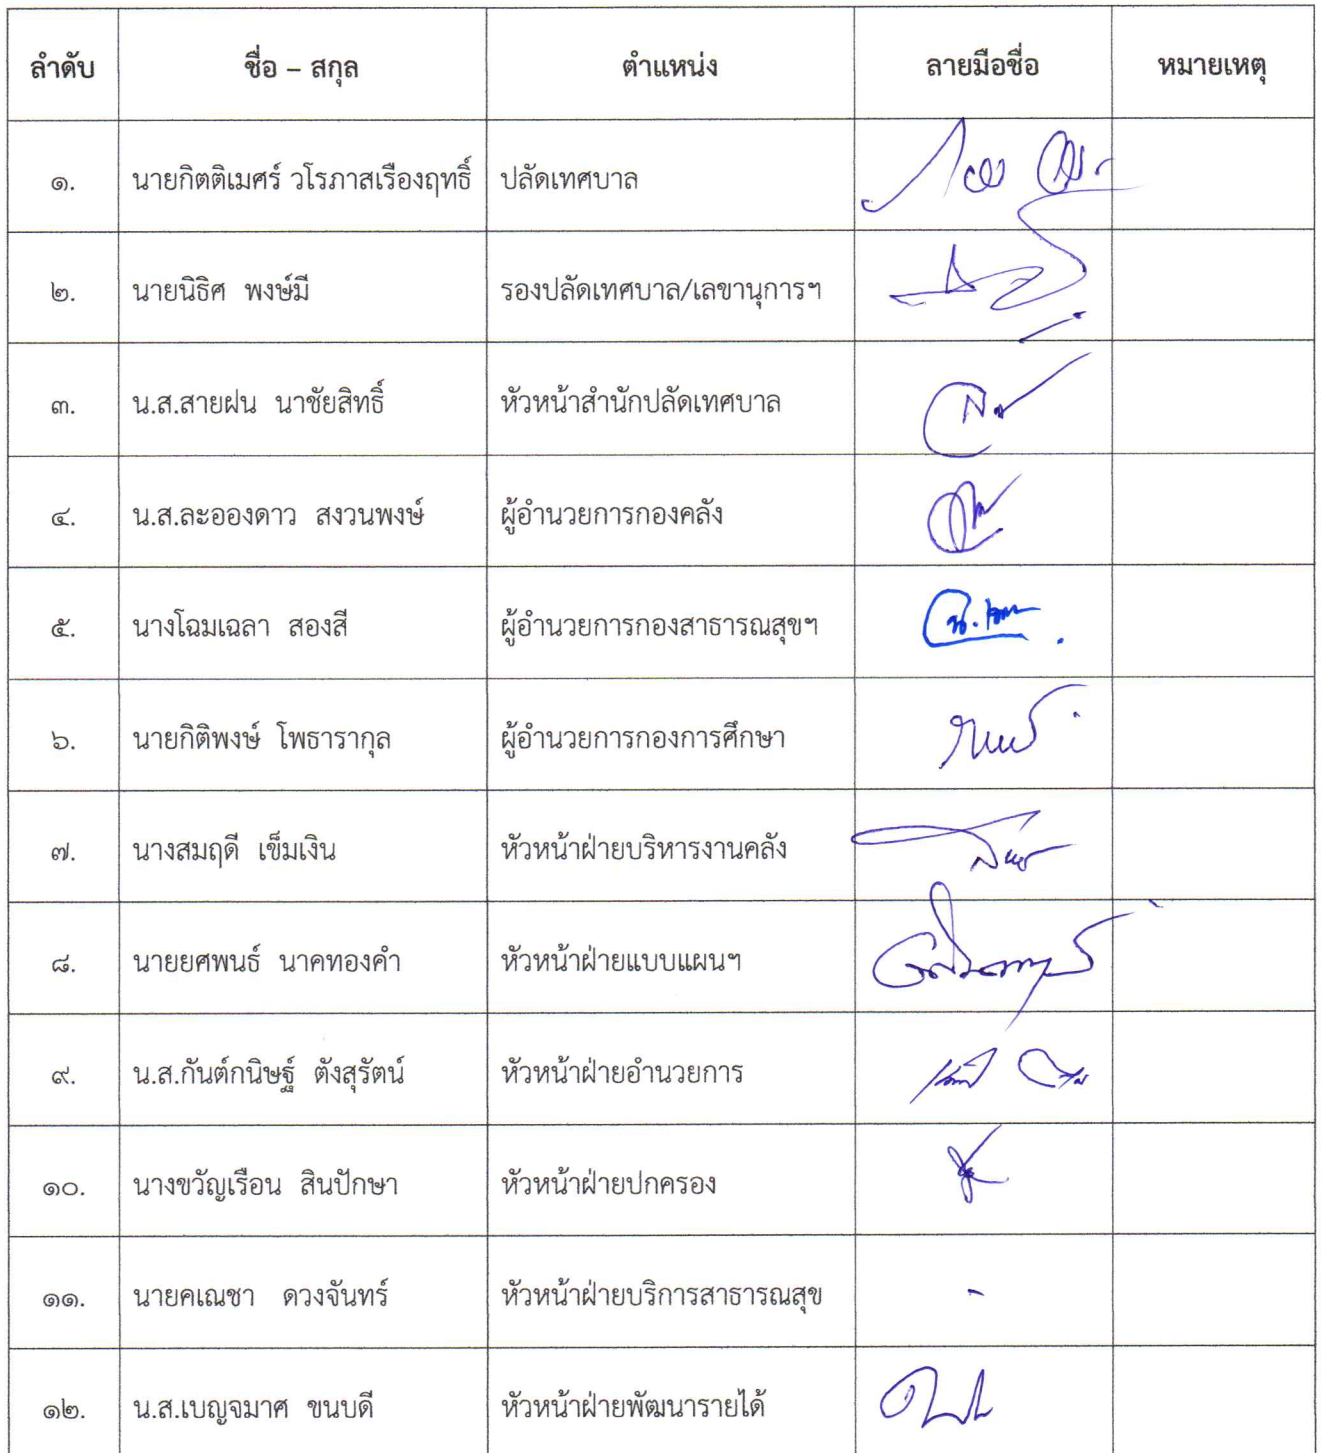 ลำดับ ชื่อ – สกุล ตำแหน่ง ลายมือชื่อ หมายเหตุ
๑. นายกิตติเมศร์ วโรภาสเรืองฤทธิ์ ปลัดเทศบาล
๒. นายนิธิศ พงษ์มี รองปลัดเทศบาล/เลขานุการฯ
๓. น.ส.สายฝน นาชัยสิทธิ์ หัวหน้าสำนักปลัดเทศบาล
๔. น.ส.ละอองดาว สงวนพงษ์ ผู้อำนวยการกองคลัง
๕. นางโฉมเฉลา สองสี ผู้อำนวยการกองสาธารณสุขฯ
๖. นายกิติพงษ์ โพธารากุล ผู้อำนวยการกองการศึกษา
๗. นางสมฤดี เข็มเงิน หัวหน้าฝ่ายบริหารงานคลัง
๘. นายยศพนธ์ นาคทองคำ หัวหน้าฝ่ายแบบแผนฯ
๙. น.ส.กันต์กนิษฐ์ ตังสุรัตน์ หัวหน้าฝ่ายอำนวยการ
๑๐. นางขวัญเรือน สินปักษา หัวหน้าฝ่ายปกครอง
๑๑. นายคเณชา ดวงจันทร์ หัวหน้าฝ่ายบริการสาธารณสุข -
๑๒. น.ส.เบญจมาศ ขนบดี หัวหน้าฝ่ายพัฒนารายได้